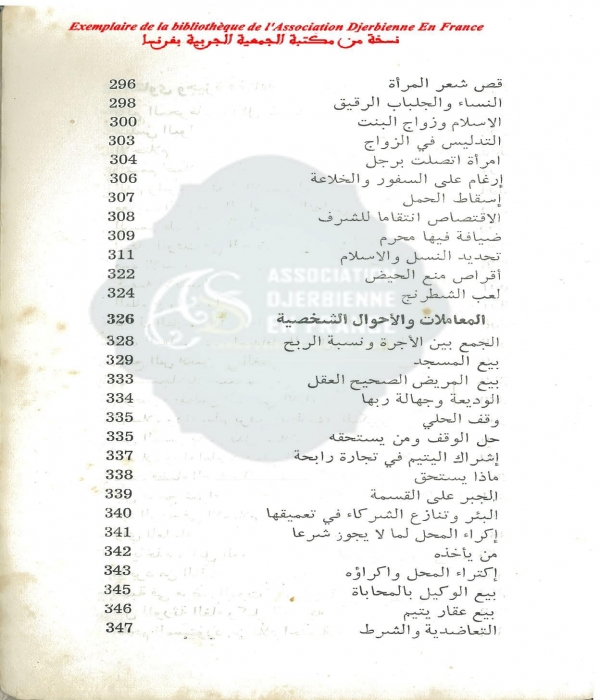 Exemplaire de la bibliothèque de l'Association Djerbienne En France
نسخة من مكتبة الجمعية الجربية بفرنسا
قص شعر المرأة 296
النساء والجلباب الرقيق 298
الاسلام وزواج البنت 300
التدليس في الزواج 303
امرأة اتصلت برجل 304
إرغام على السفور والخلاعة 306
إسقاط الحمل 307
الاقتصاص انتقاما للشرف 308
ضيافة فيها محرم 309
تحديد النسل والاسلام 311
أقراص منع الحيض 322
لعب الشطرنج 324
المعاملات والأحوال الشخصية 326
الجمع بين الأجرة ونسبة الربح 328
بيع المسجد 329
بيع المريض الصحيح العقل 333
الوديعة وجهالة ربها 334
وقف الحلي 335
حل الوقف ومن يستحقه 335
إشراك اليتيم في تجارة رابحة 337
ماذا يستحق 338
الجبر على القسمة 339
البئر وتنازع الشركاء في تعميقها 340
إكراء المحل لما لا يجوز شرعا 341
من يأخذه 342
إكتراء المحل واكراؤه 343
بيع الوكيل بالمحاباة 345
بيع عقار يتيم 346
التعاضدية والشرط 347
ASSOCIATION
DJERBIENNE
EN FRANCE